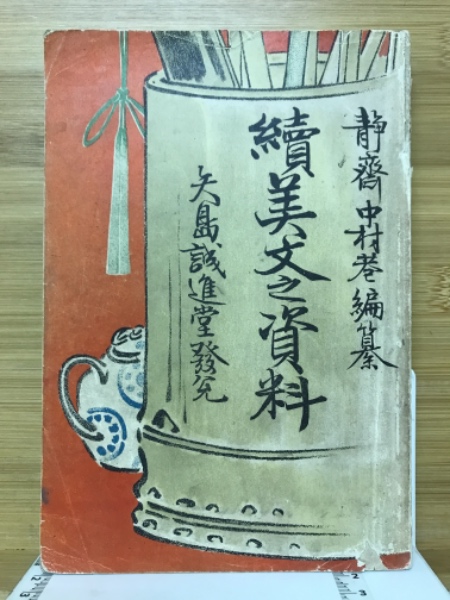 静齋中村巷編纂
續美文之資料
矢島誠進堂發兌
2
3